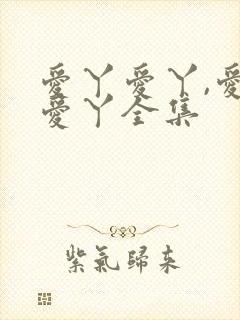 愛丫愛丫,愛
愛丫全集
紫氣歸來